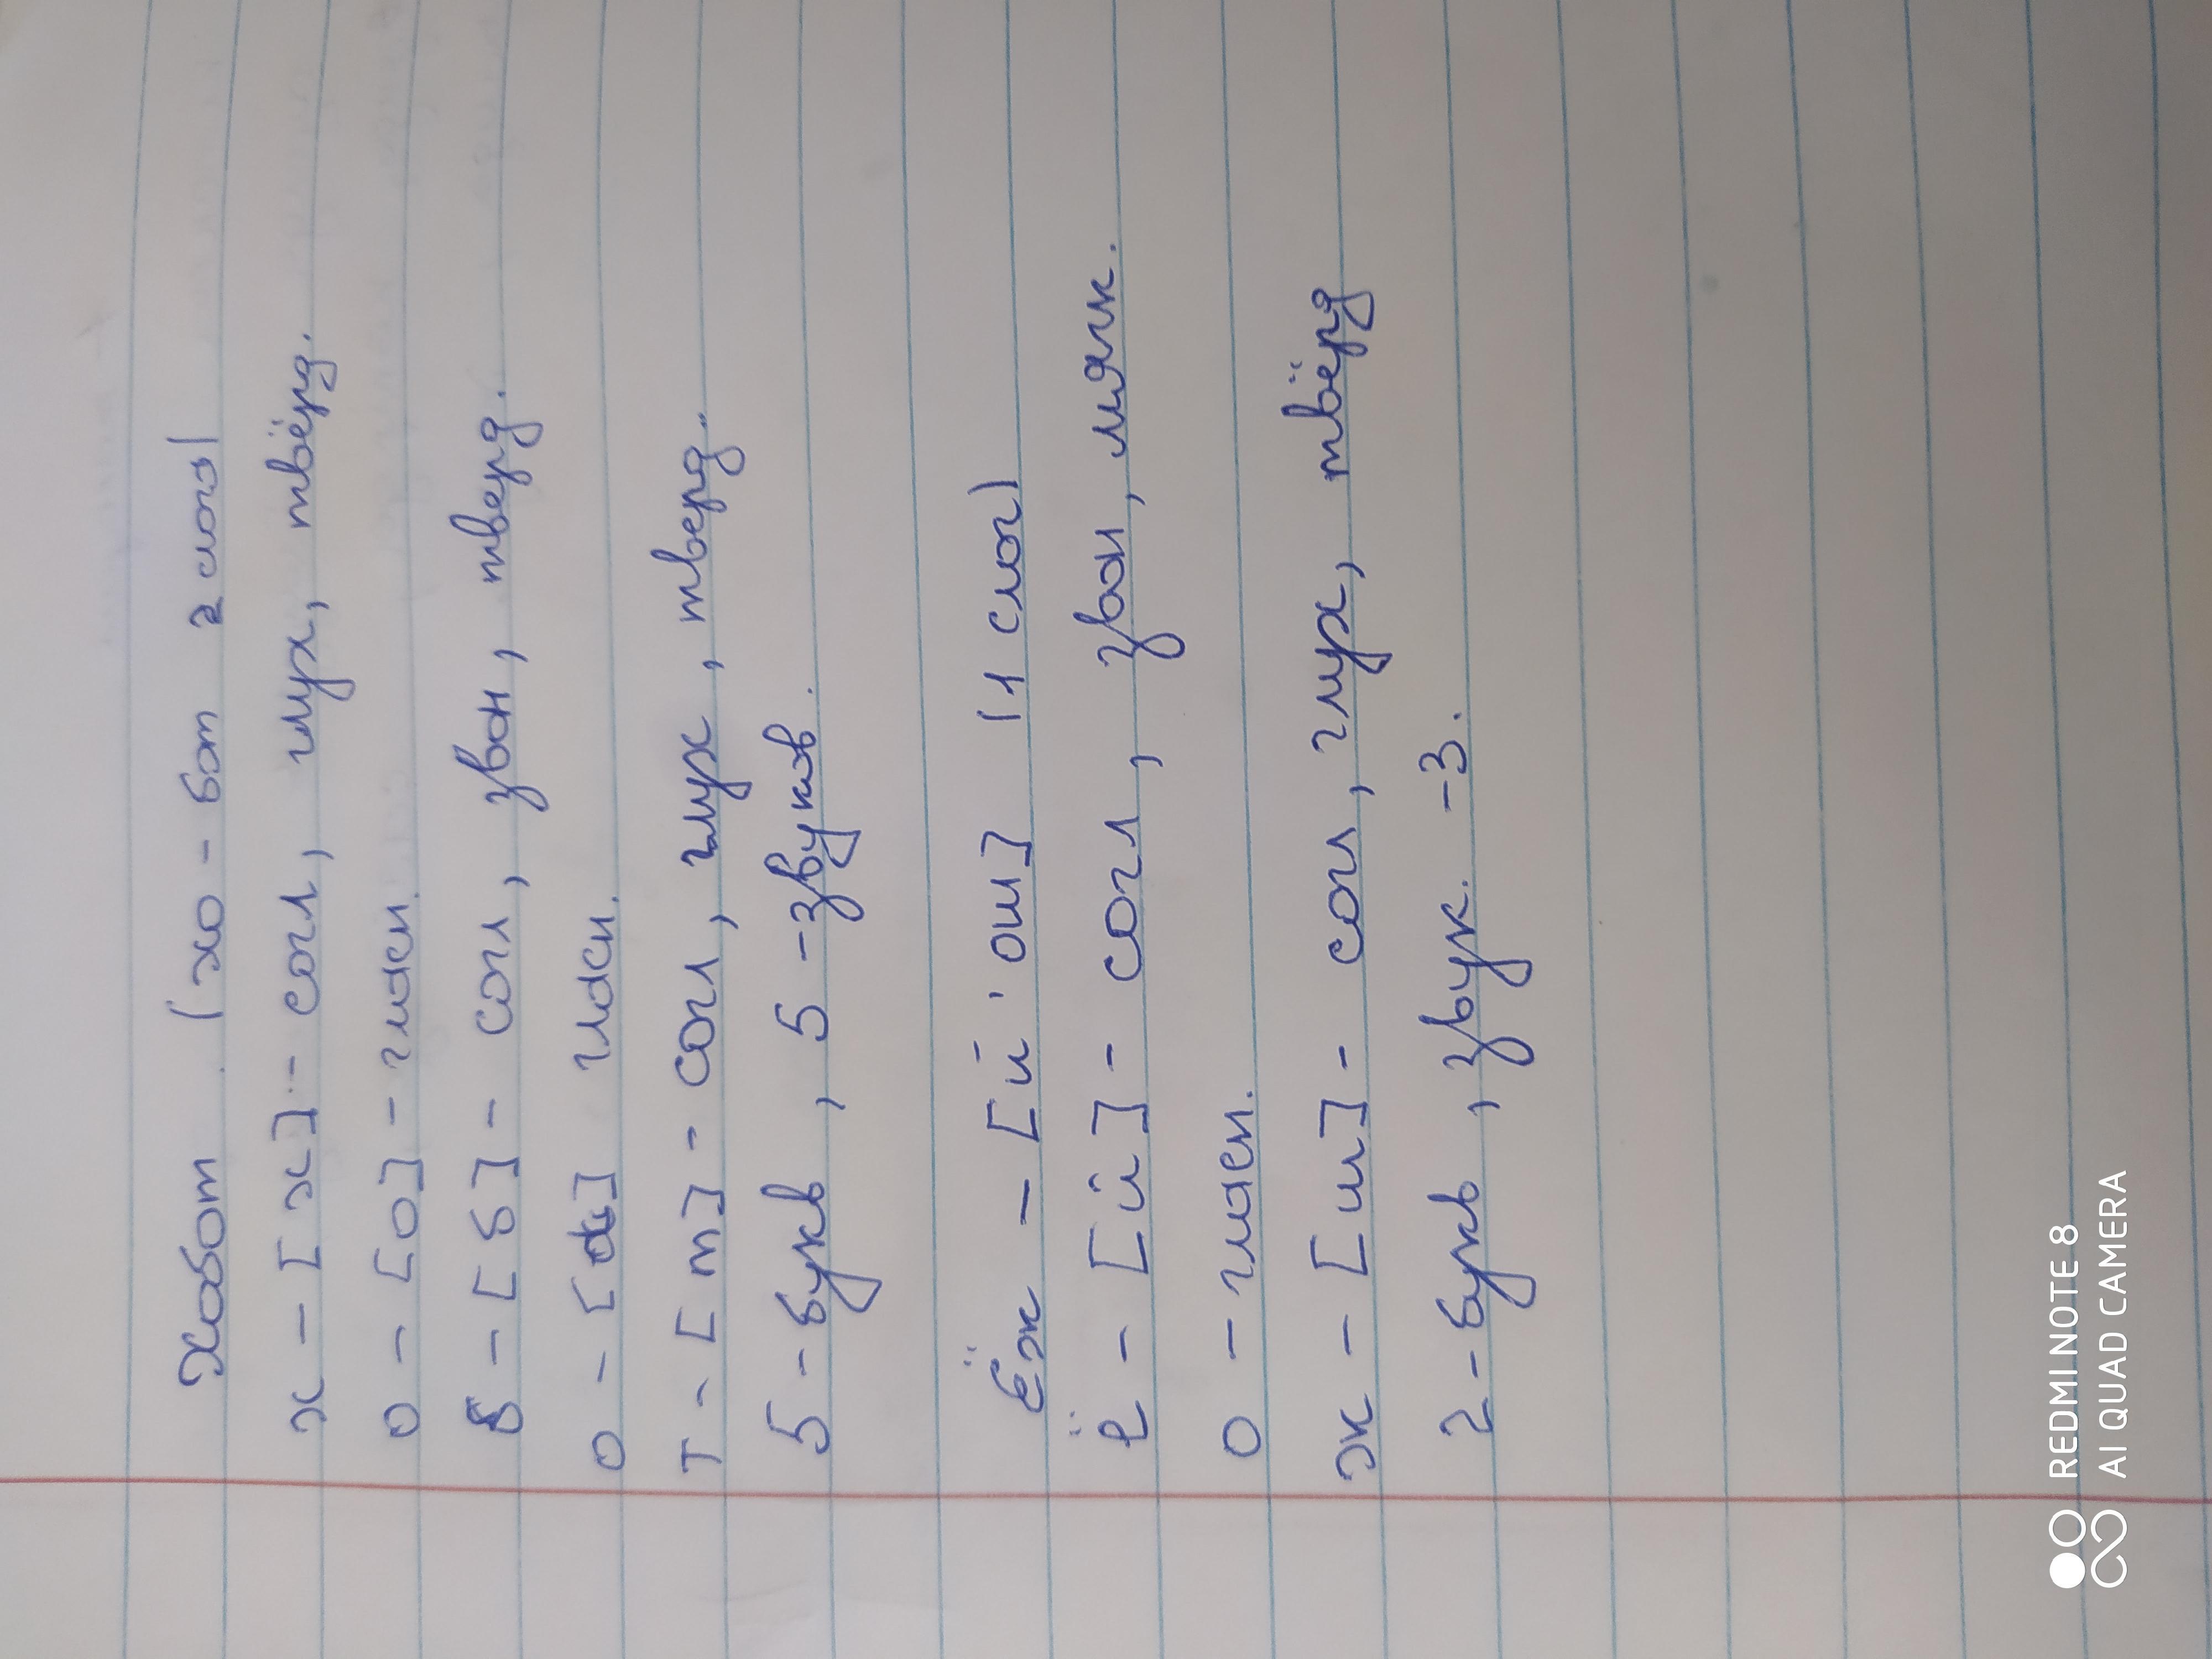 Хобот (хо - бот 2 слога)
х - [х] - согл, глух, твёрд.
о - [о] - гласн.
б - [б] - согл, звон, тверд.
о - [а] гласн.
т - [т] - согл, глух, тверд.
5 - букв, 5 - звуков.
Ёж - [й'ош] (1 слог)
ё - [й] - согл, звон, мягк.
о - гласн.
ж - [ш] - согл, глух, твёрд
2 - букв, звук. - 3.
REDMI NOTE 8
AI QUAD CAMERA